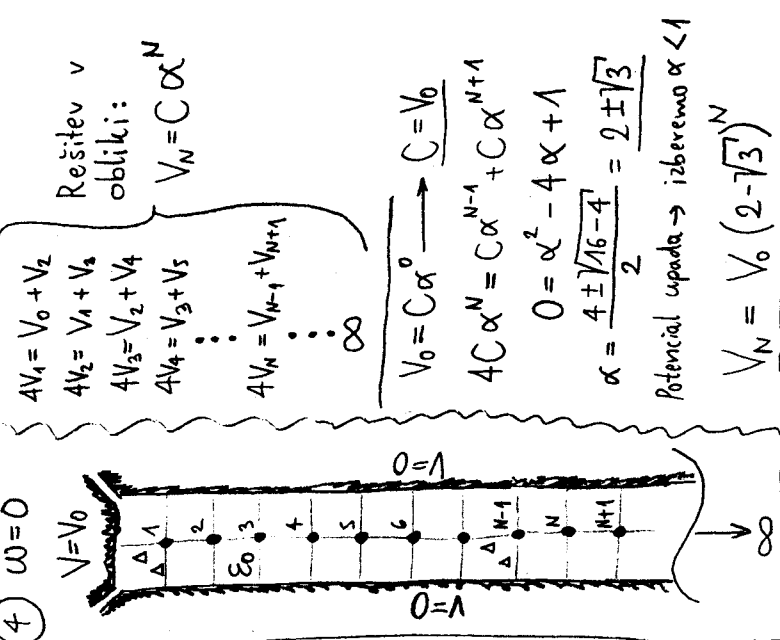 ④ ω=0
V=V₀
Δ
Δ
1
2
3
ε₀
4
5
6
Δ
Δ
N-1
N
N+1
V=0
V=0
∞
4V₁=V₀+V₂
4V₂=V₁+V₃
4V₃=V₂+V₄
4V₄=V₃+V₅
4V_N=V_{N-1}+V_{N+1}
∞
Rešitev v
obliki:
V_N=Cα^N
V₀=Cα⁰ → C=V₀
4Cα^N=Cα^{N-1}+Cα^{N+1}
0=α²-4α+1
α=(4±√(16-4))/2=2±√3
Potencial upada → izberemo α<1
V_N=V₀(2-√3)^N